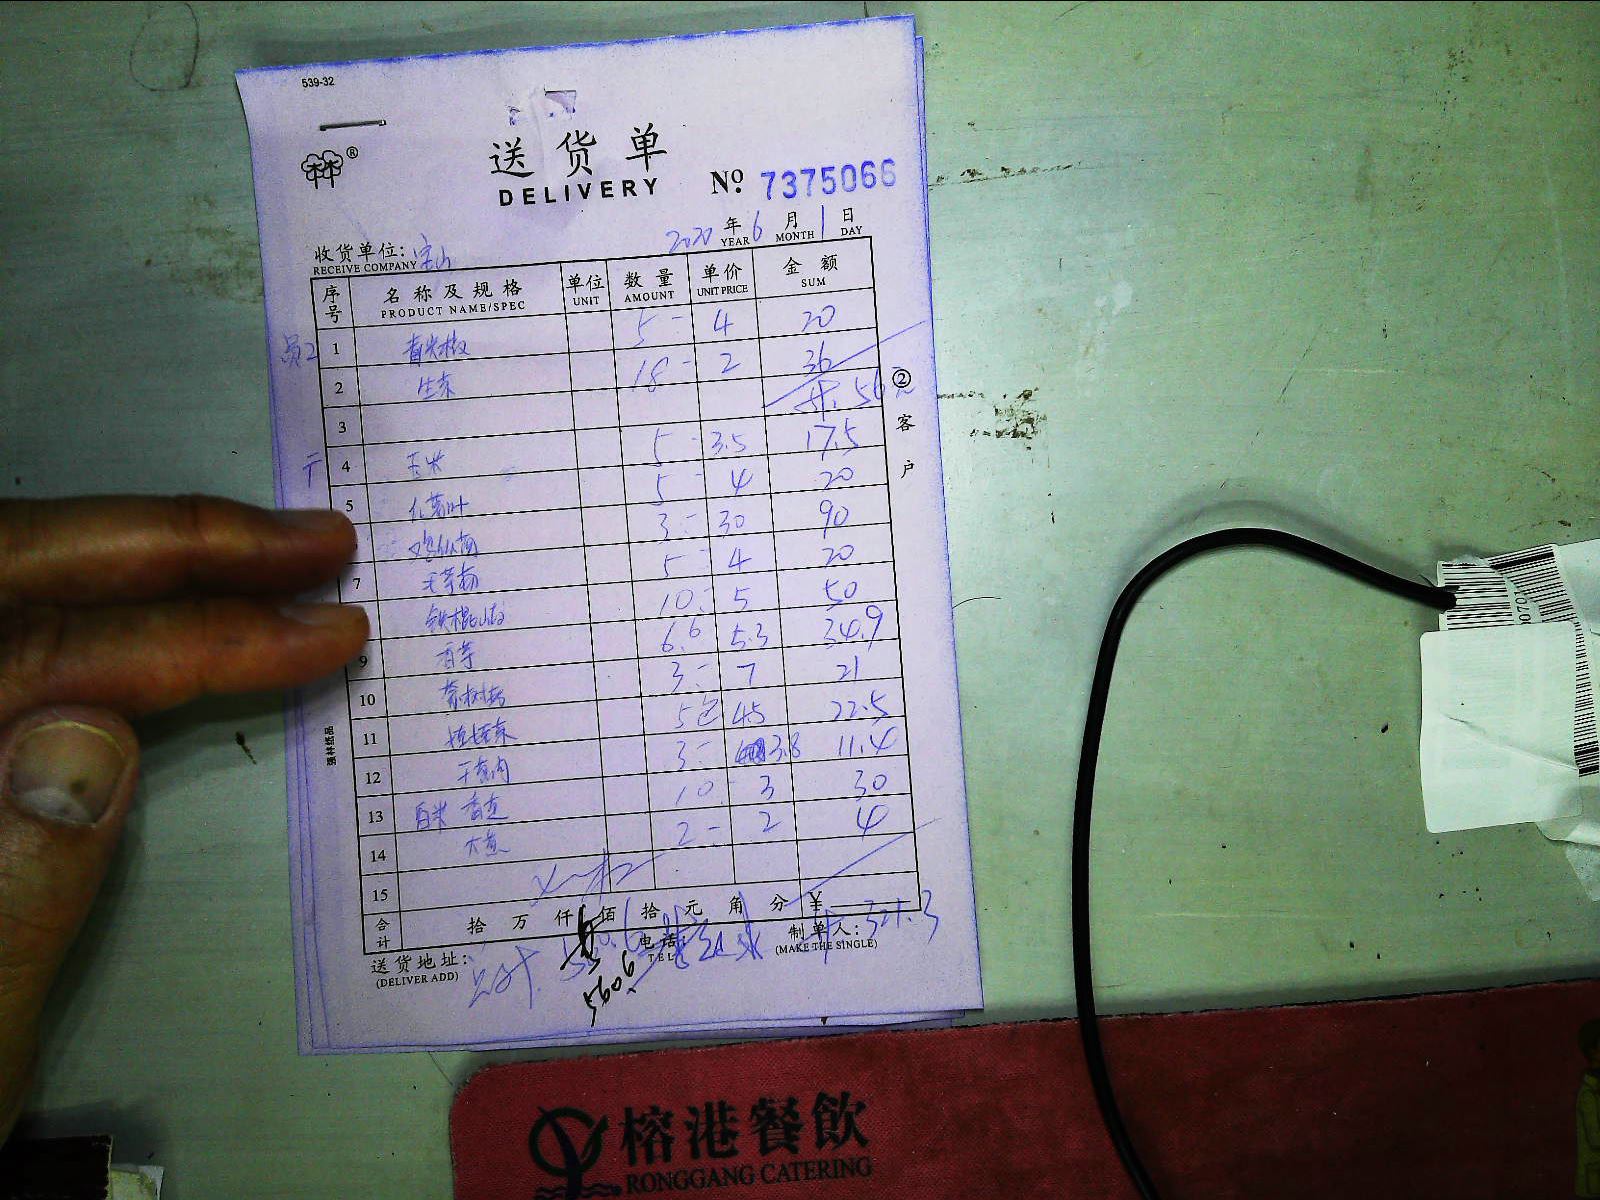 539-32
®
送货单
DELIVERY
No. 7375066
2020年6月1日
YEAR MONTH DAY
收货单位:
RECEIVE COMPANY
序号 名称及规格 单位 数量 单价 金额
PRODUCT NAME/SPEC UNIT AMOUNT UNIT PRICE SUM
1 青尖椒 5- 4 20
2 生菜 18- 2 36
3 56元
4 玉米 5- 3.5 17.5
5 5- 4 20
3- 30 90
7 5- 4 20
铁棍山药 10- 5 50
9 香芋 6.6 5.3 34.9
10 茶树菇 3- 7 21
11 娃娃菜 5包 4.5 22.5
12 3- 3.8 11.4
13 10- 3 30
14 大葱 2- 2 4
15
合计 拾万仟佰拾元角分 ¥
321.3
送货地址:
(DELIVER ADD)
电话:
TEL
制单人:
(MAKE THE SINGLE)
②客户
榕港餐飲
RONGGANG CATERING